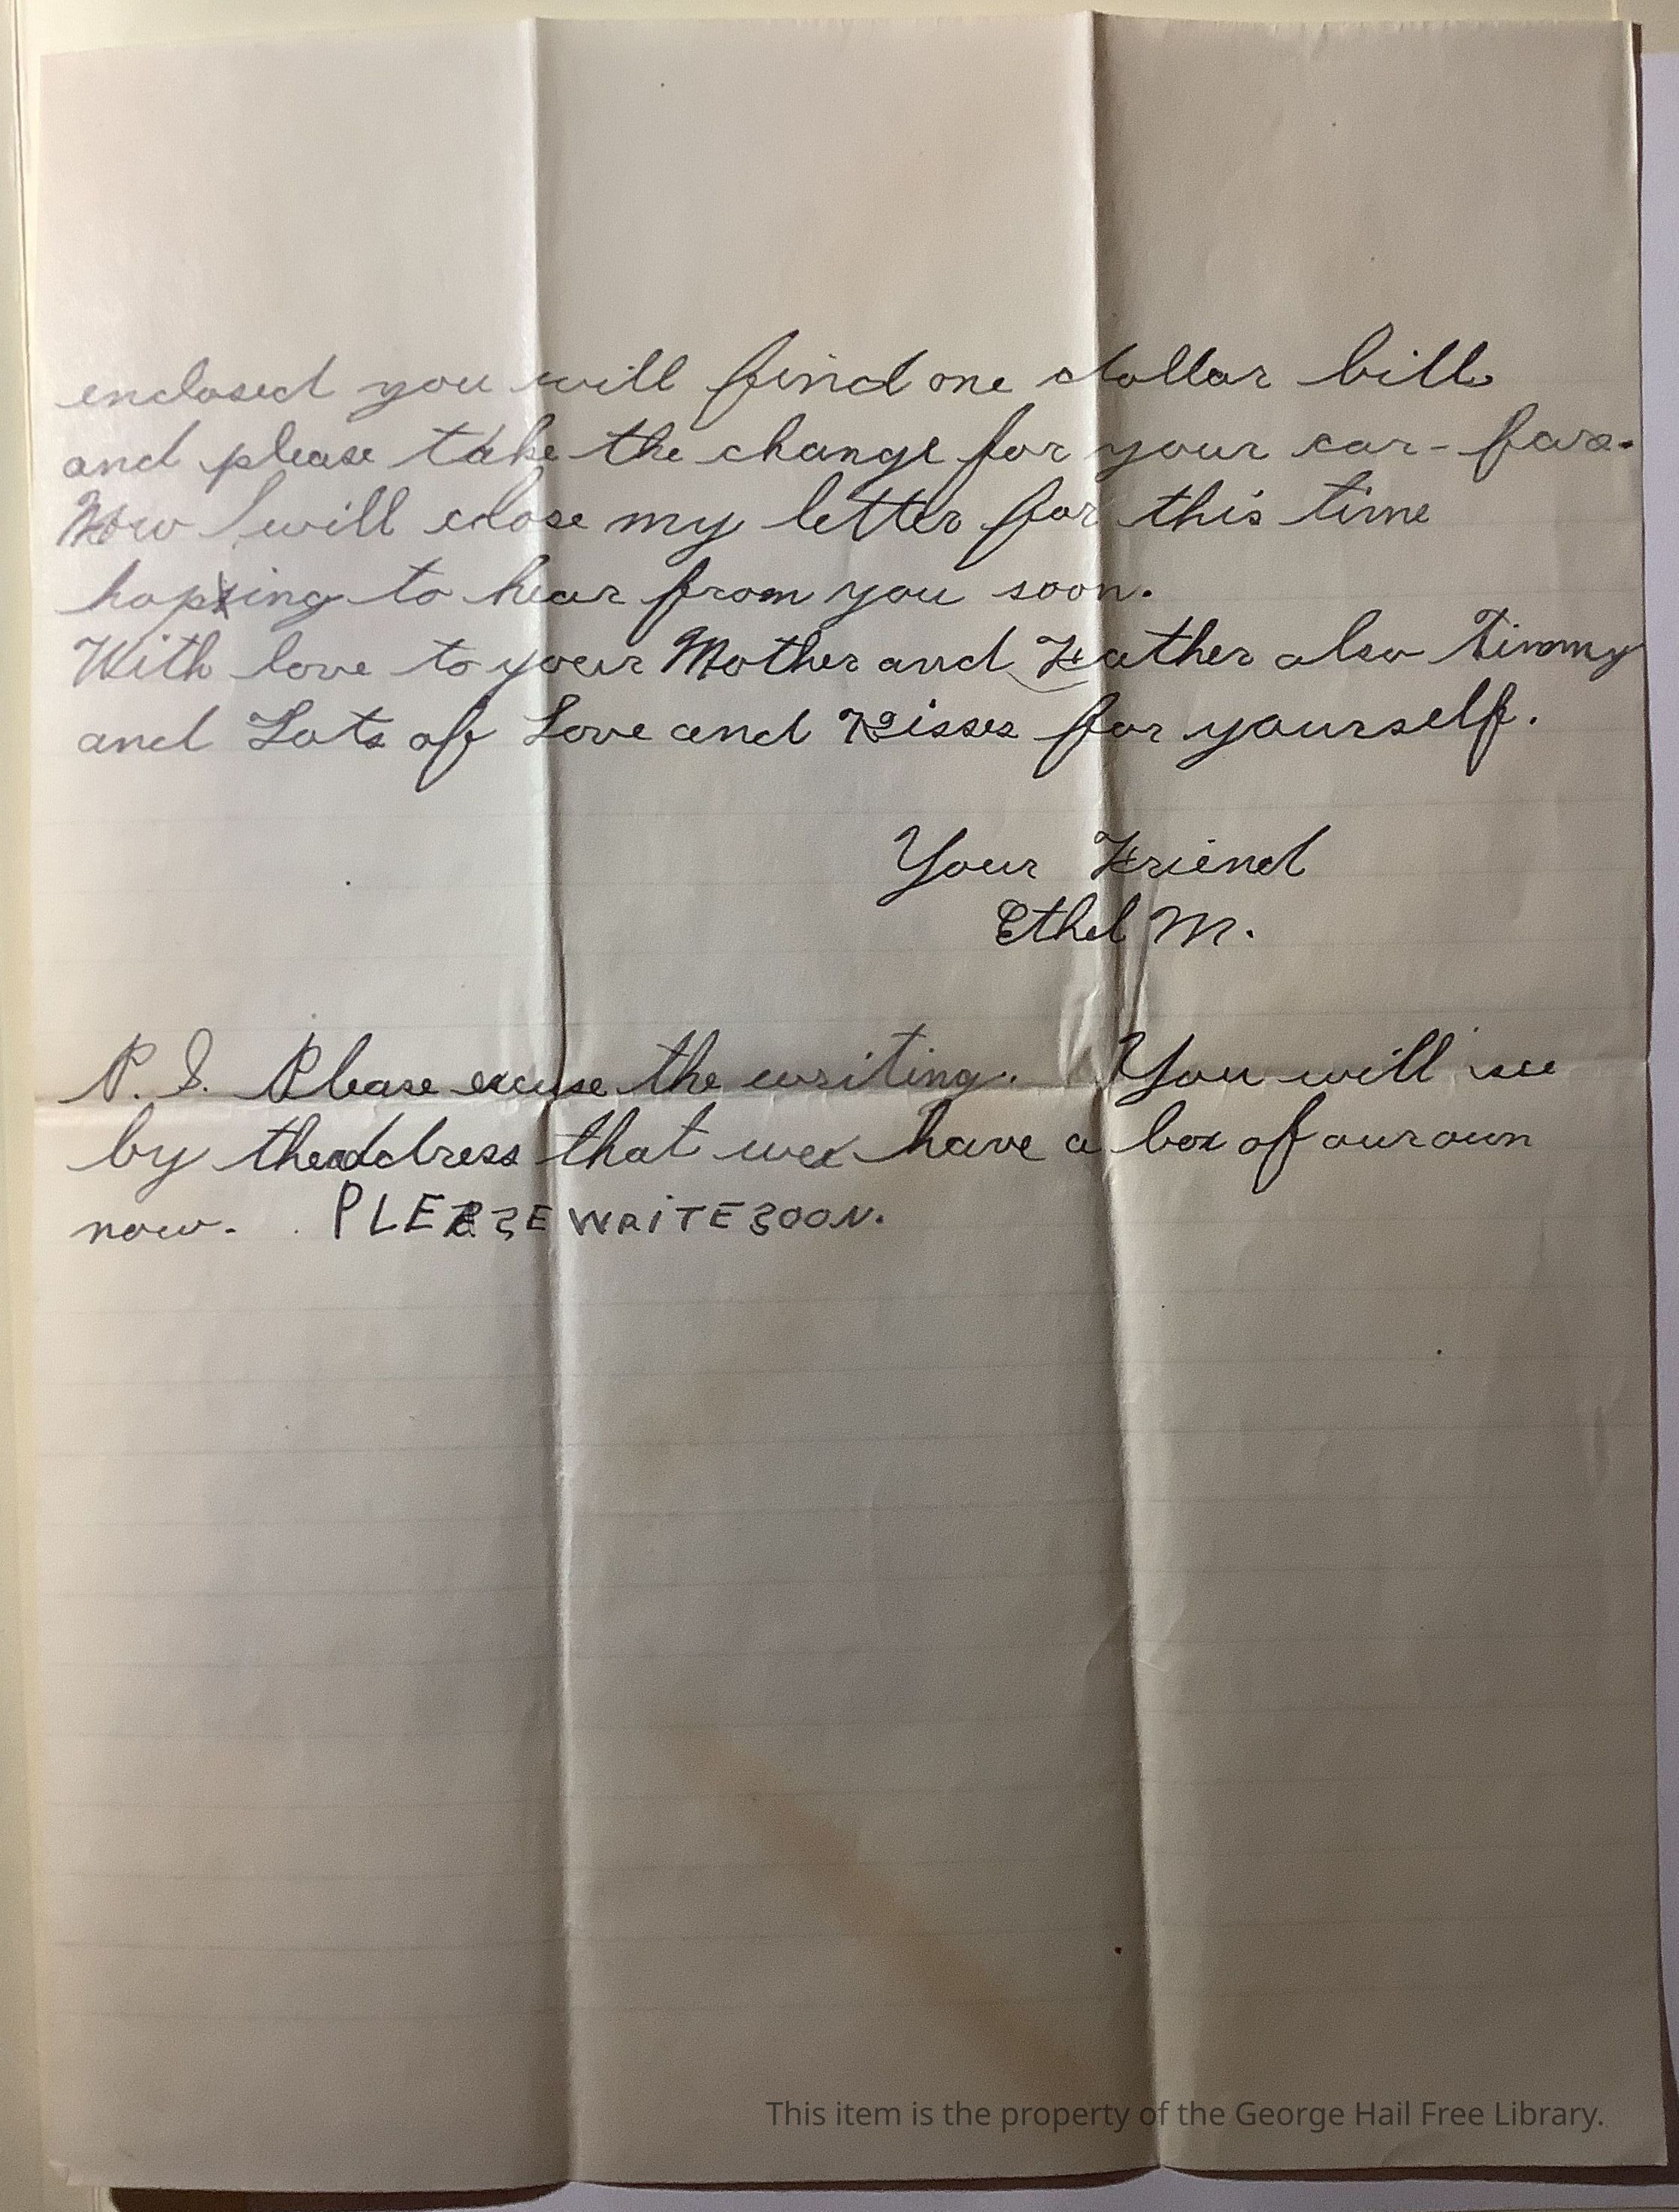 enclosed you will find one dollar bill
and please take the change for your car-fare.
Now I will close my letter for this time
hoping to hear from you soon.
With love to your Mother and Father also Timmy
and Lots of Love and Kisses for yourself.
Your Friend
Ethel M.
P.S. Please excuse the writing. You will see
by the address that we have a box of our own
now. PLEASE WRITE SOON.
This item is the property of the George Hail Free Library.